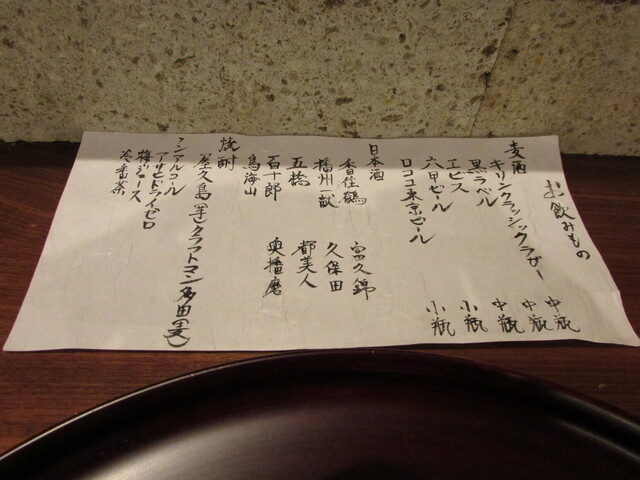 お飲みもの
麦酒
キリンクラッシックラガー 中瓶
黒ラベル 中瓶
エビス 中瓶
六甲ビール 小瓶
ロココ東京ビール 小瓶
日本酒
香住鶴 富久錦
播州一献 久保田
五橋 都美人
百十郎 奥播磨
鳥海山
焼酎
屋久島(芋) クラフトマン多田(麦)
ノンアルコール
アサヒドライゼロ
梅ジュース